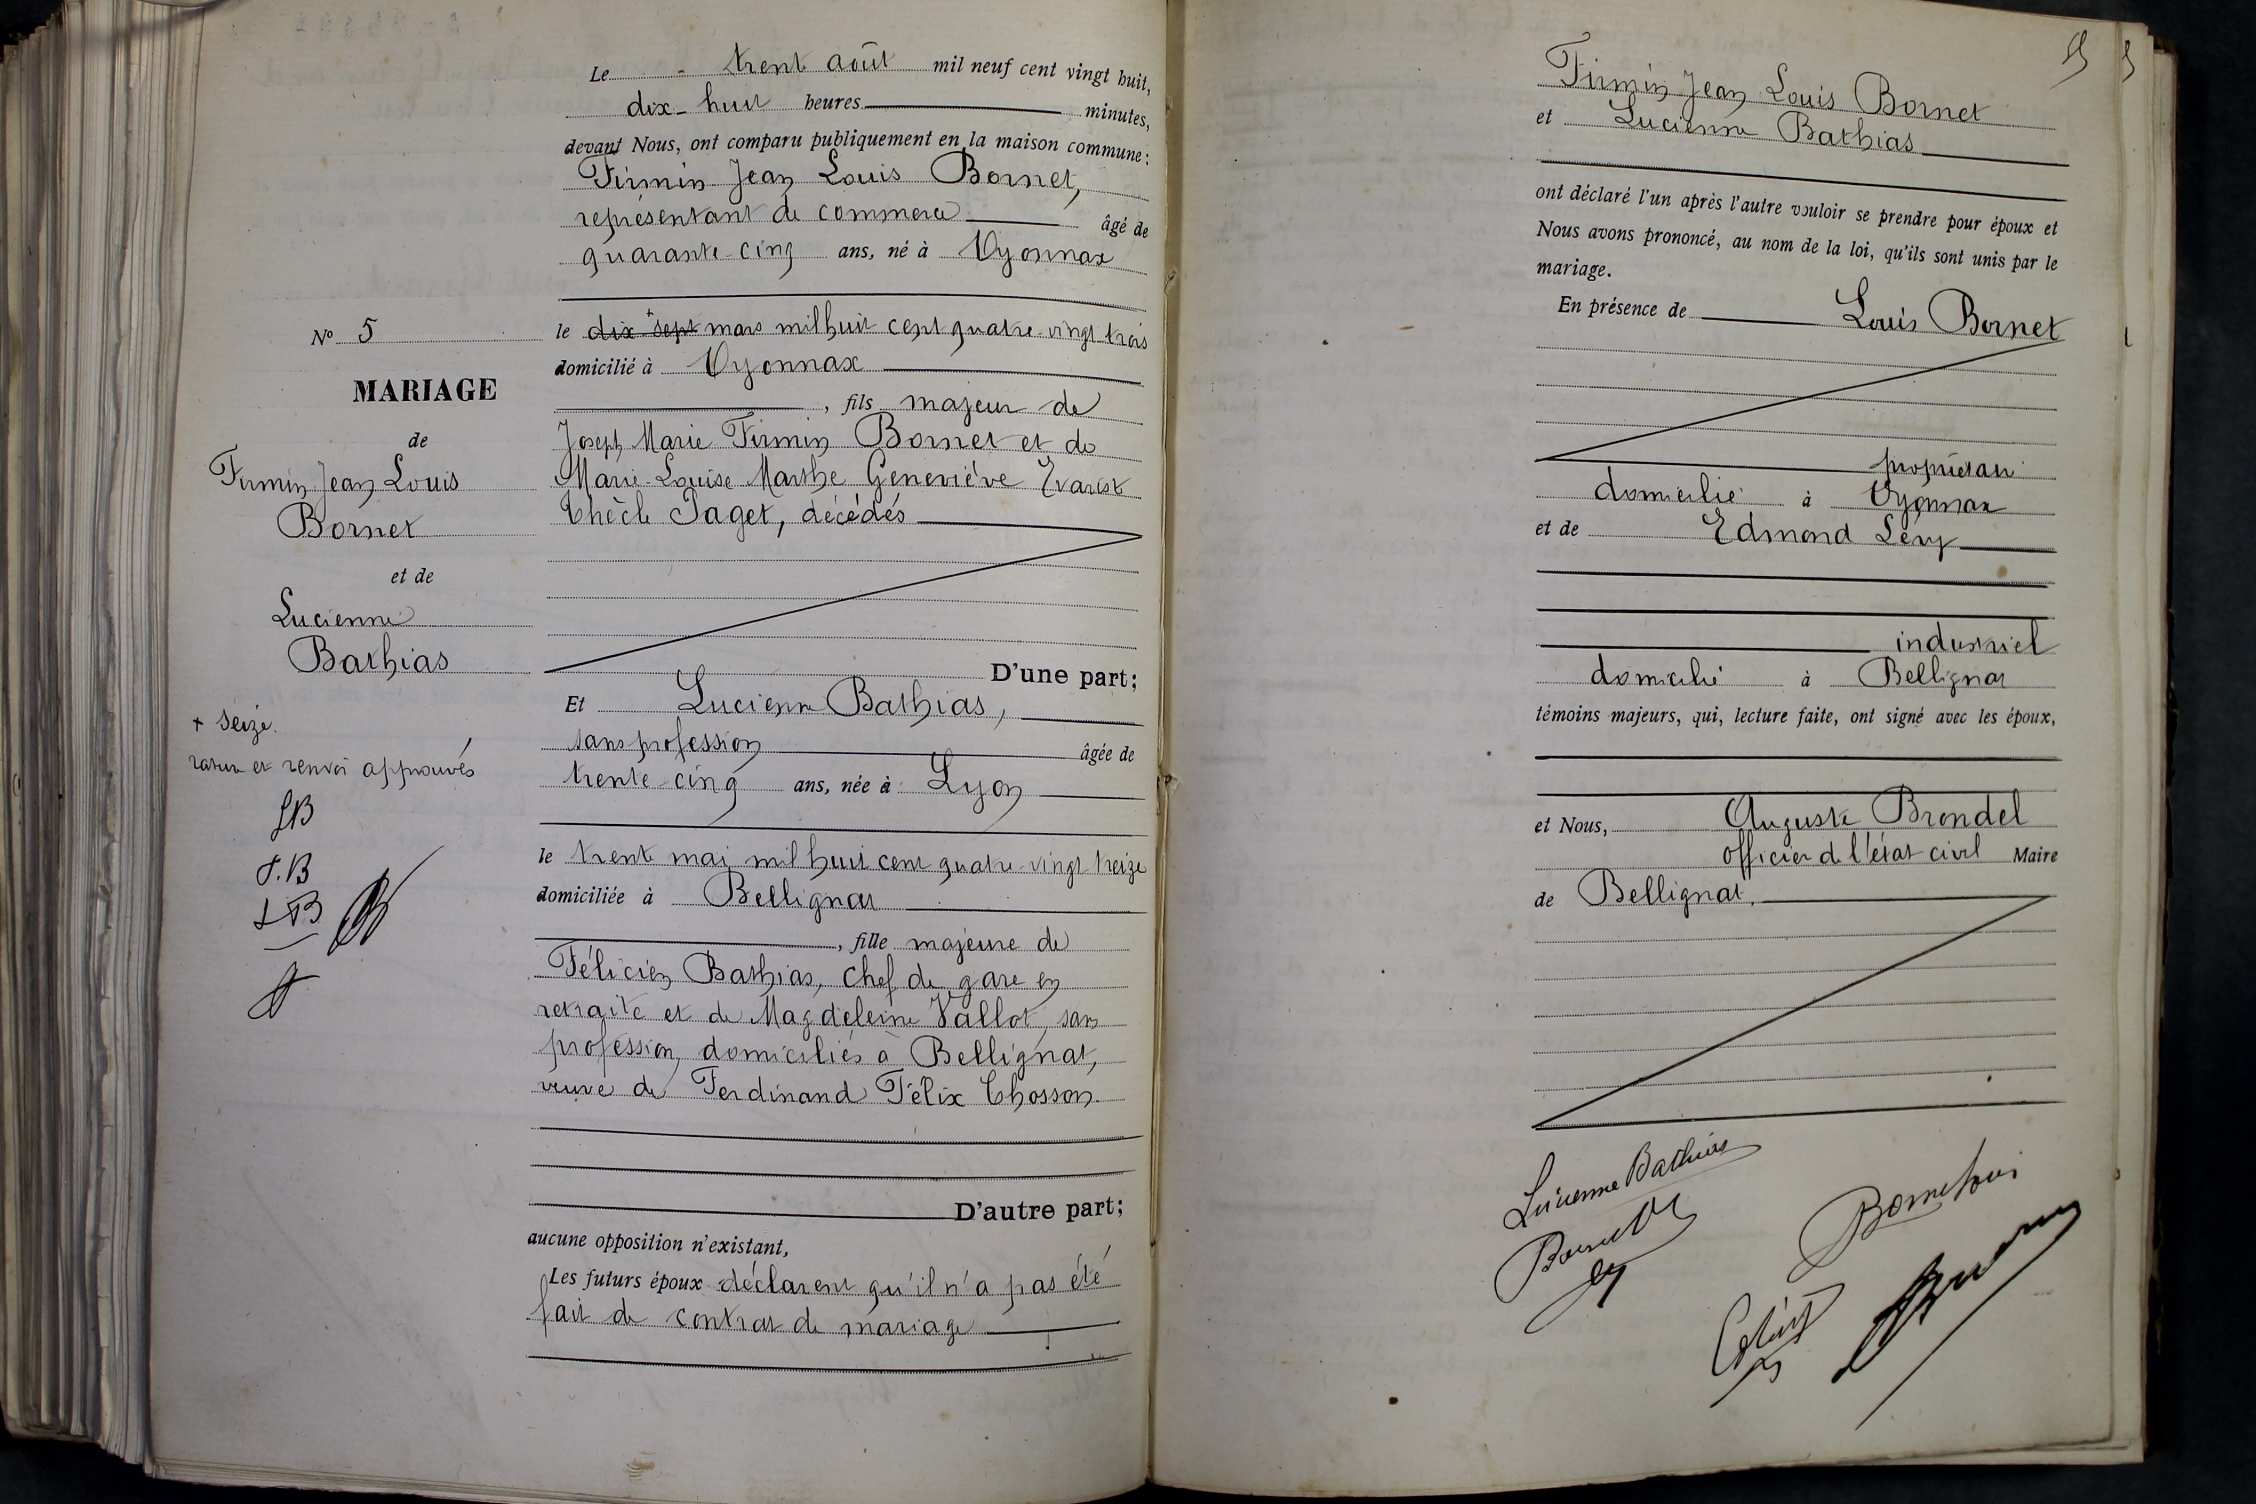 Le trente août mil neuf cent vingt huit,
dix-huit heures minutes,
devant Nous, ont comparu publiquement en la maison commune :
Firmin Jean Louis Bornet,
représentant de commerce âgé de
quarante-cinq ans, né à Oyonnax
le dix + sept mars mil huit cent quatre-vingt trois
domicilié à Oyonnax
, fils majeur de
Joseph Marie Firmin Bornet et de
Marie-Louise Marthe Geneviève Evariste
Thècle Paget, décédés
D'une part;
Et Lucienne Bathias,
sans profession âgée de
trente-cinq ans, née à Lyon
le trente mai mil huit cent quatre-vingt treize
domiciliée à Bellignat
, fille majeure de
Félicien Bathias, chef de gare en
retraite et de Magdeleine Vallot, sans
profession, domiciliés à Bellignat,
veuve de Ferdinand Félix Chosson.
D'autre part;
aucune opposition n'existant,
Les futurs époux déclarent qu'il n'a pas été
fait de contrat de mariage
N° 5
MARIAGE
de
Firmin Jean Louis
Bornet
et de
Lucienne
Bathias
+ seize.
rature et renvoi approuvés
LB
J.B
Firmin Jean Louis Bornet
et Lucienne Bathias
ont déclaré l'un après l'autre vouloir se prendre pour époux et
Nous avons prononcé, au nom de la loi, qu'ils sont unis par le
mariage.
En présence de Louis Bornet
propriétaire
domicilié à Oyonnax
et de Edmond Léry
industriel
domicilié à Bellignat
témoins majeurs, qui, lecture faite, ont signé avec les époux,
et Nous, Auguste Brondel
officier de l'état civil Maire
de Bellignat.
Lucienne Bathias
Bornet Louis